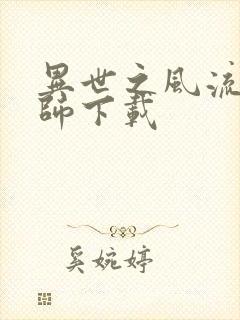 異世之風流
師下載
奚婉婷